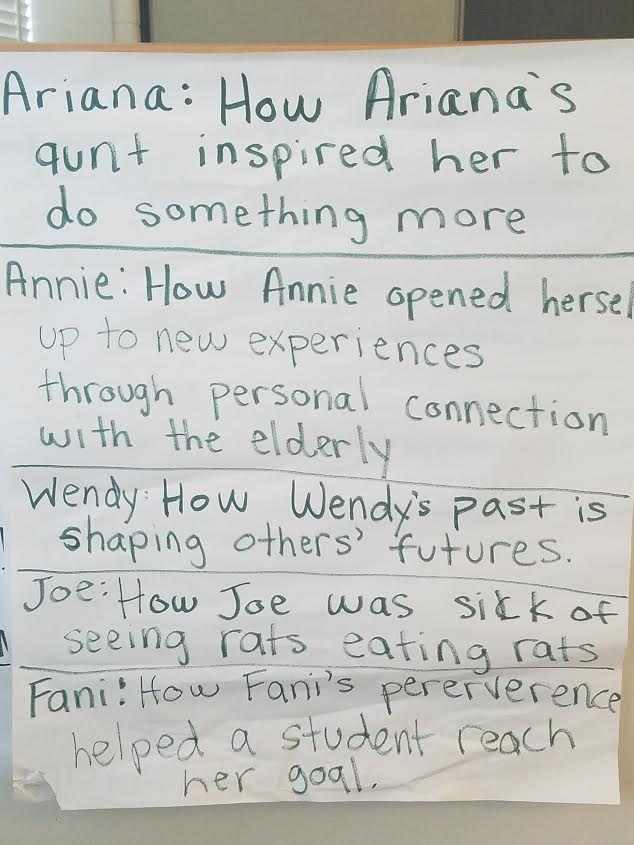 Ariana: How Ariana's
aunt inspired her to
do something more
Annie: How Annie opened hersel
up to new experiences
through personal connection
with the elderly
Wendy: How Wendy's past is
shaping others' futures.
Joe: How Joe was sick of
seeing rats eating rats
Fani: How Fani's pererverence
helped a student reach
her goal.